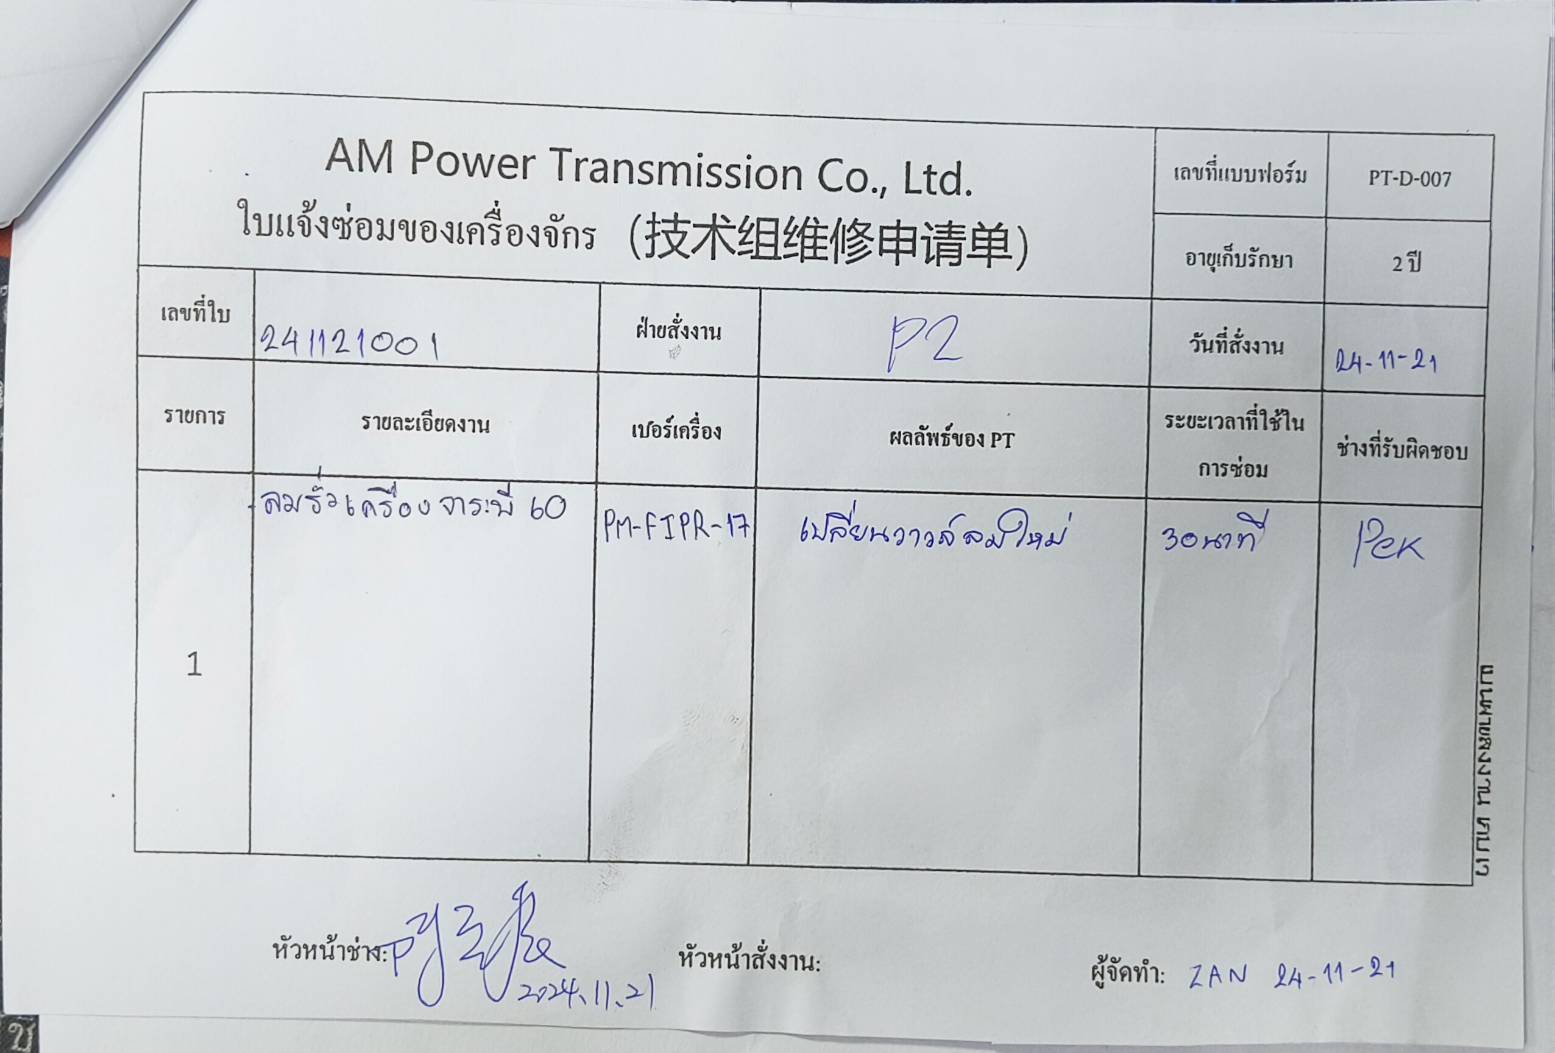 AM Power Transmission Co., Ltd.
ใบแจ้งซ่อมของเครื่องจักร (技术组维修申请单)
เลขที่แบบฟอร์ม
PT-D-007
อายุเก็บรักษา
2 ปี
เลขที่ใบ
241121001
ฝ่ายสั่งงาน
P2
วันที่สั่งงาน
24-11-21
รายการ
รายละเอียดงาน
เบอร์เครื่อง
ผลลัพธ์ของ PT
ระยะเวลาที่ใช้ใน
การซ่อม
ช่างที่รับผิดชอบ
1
ลมรั่วเครื่องจาระบี 60
PM-FIPR-17
เปลี่ยนวาวล์ลมใหม่
30นาที
Pek
หัวหน้าช่าง:
2024.11.21
หัวหน้าสั่งงาน:
ผู้จัดทำ: ZAN 24-11-21